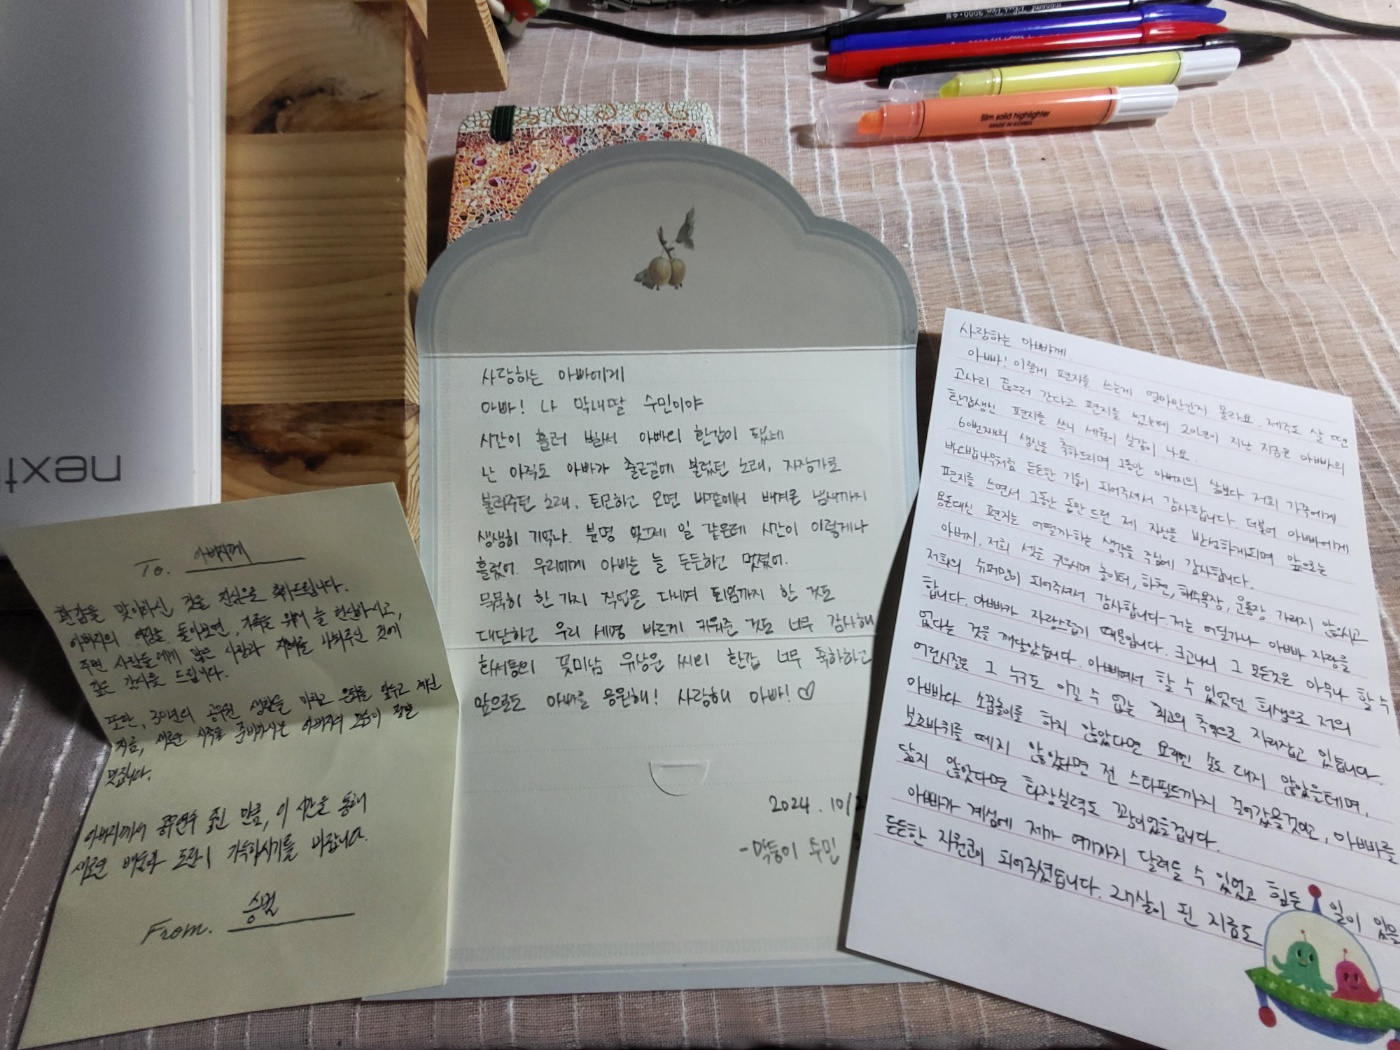 To. 아버지께
환갑을 맞이하신 것을 진심으로 축하드립니다.
아버지의 여정을 돌아보면, 가족을 위해 늘 헌신하시고,
주변 사람들에게 많은 사랑과 지혜를 나눠주신 것에
깊은 감사를 드립니다.
또한, 30년의 공무원 생활을 마치고 은퇴를 앞두고 계신
지금, 새로운 시작을 준비하시는 아버지의 모습이 정말
멋집니다.
아버지께서 공부하신 만큼, 이 시간을 통해
새로운 배움과 도전이 가득하시기를 바랍니다.
From. 승범
사랑하는 아빠에게
아빠! 나 막내딸 수민이야
시간이 흘러 벌써 아빠의 환갑이 됐네
난 아직도 아빠가 출근길에 불렀던 노래, 자장가로
불러주던 노래, 퇴근하고 오면 바깥에서 배겨온 냄새까지
생생히 기억나. 분명 엊그제 일 같은데 시간이 이렇게나
흘렀어. 우리에게 아빠는 늘 든든하고 멋졌어.
묵묵히 한 가지 직업은 다니며 퇴임까지 한 것도
대단하고 우리 세명 바르게 키워준 것도 너무 감사해
화서동의 꽃미남 유상운 씨의 환갑 너무 축하하고
앞으로도 아빠를 응원해! 사랑해 아빠! ♡
2024. 10/2
- 막둥이 수민
사랑하는 아빠께
아빠! 이렇게 편지를 쓰는게 얼마만인지 몰라요 제주도 살 때
고사리 뜯으러 간다고 편지를 썼는데 20년이 지난 지금은 아빠의
환갑생신 편지를 쓰니 세월이 실감이 나요.
60번째의 생신을 축하드리며 그동안 아버지의 삶보다 저희 가족에게
버스밥나무처럼 든든한 기둥이 되어주셔서 감사합니다. 더불어 아빠에게
편지를 쓰면서 그동안 해드린 제 자신을 반성하게되며 앞으로는
용돈대신 편지는 어떨까하는 생각을 주심에 감사합니다.
아버지, 저희 셋을 키우시며 놀이터, 하천, 해수욕장, 운동장 가리지 않으시고
저희의 슈퍼맨이 되어주셔서 감사합니다. 저는 어딜가나 아빠 자랑을
합니다. 아빠가 자랑스럽기 때문입니다. 크고나니 그 모든것은 아무나 할 수
없다는 것을 깨달았습니다. 아빠여서 할 수 있었던 희생으로 저의
어린시절은 그 누구도 이길 수 없는 최고의 추억으로 자리잡고 있습니다.
아빠와 소꿉놀이를 하지 않았다면 요리엔 손도 대지 않았을테며,
보조바퀴를 떼지 않았다면 전 스타필드까지 걸어갔을것이고, 아빠를
닮지 않았다면 화장실력도 꽝이었을겁니다.
아빠가 계심에 제가 여기까지 달려올 수 있었고 힘든 일이 있을
든든한 지원군이 되어주셨습니다. 27살이 된 지금도
Slim solid highlighter
MADE IN KOREA
next